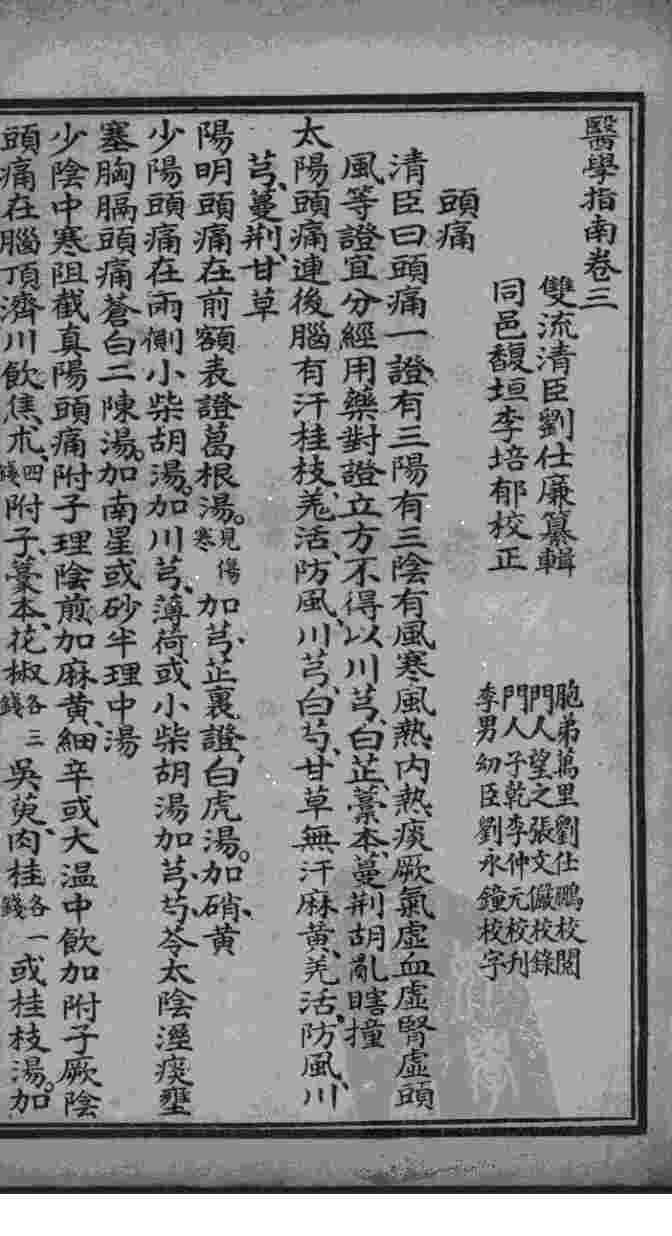 醫學指南卷三
雙流清臣劉仕廉纂輯
同邑馥垣李培郁校正
胞弟萬里劉仕鵬校閱
門人望之張文儼校錄
門人子乾李仲元校刋
李男幼臣劉永鐘校字
頭痛
清臣曰頭痛一證有三陽有三陰有風寒風熱內熱痰厥氣虛血虛腎虛頭
風等證宜分經用藥對證立方不得以川芎、白芷、藁本、蔓荆胡亂瞎撞
太陽頭痛連後腦有汗桂枝、羗活、防風、川芎、白芍、甘草無汗麻黄、羗活、防風、川
芎、蔓荆、甘草
陽明頭痛在前額表證葛根湯。見傷寒加芎、芷裏證、白虎湯。加硝、黄
少陽頭痛在兩側小柴胡湯。加川芎、薄荷或小柴胡湯加芎、芍、苓太陰溼痰壅
塞胸膈頭痛蒼白二陳湯。加南星或砂半理中湯
少陰中寒阻截真陽頭痛附子理陰煎加麻黄、細辛或大温中飲加附子厥陰
頭痛在腦頂濟川飲焦朮、四錢附子、藁本、花椒各三錢吳萸、肉桂各一錢或桂枝湯。加